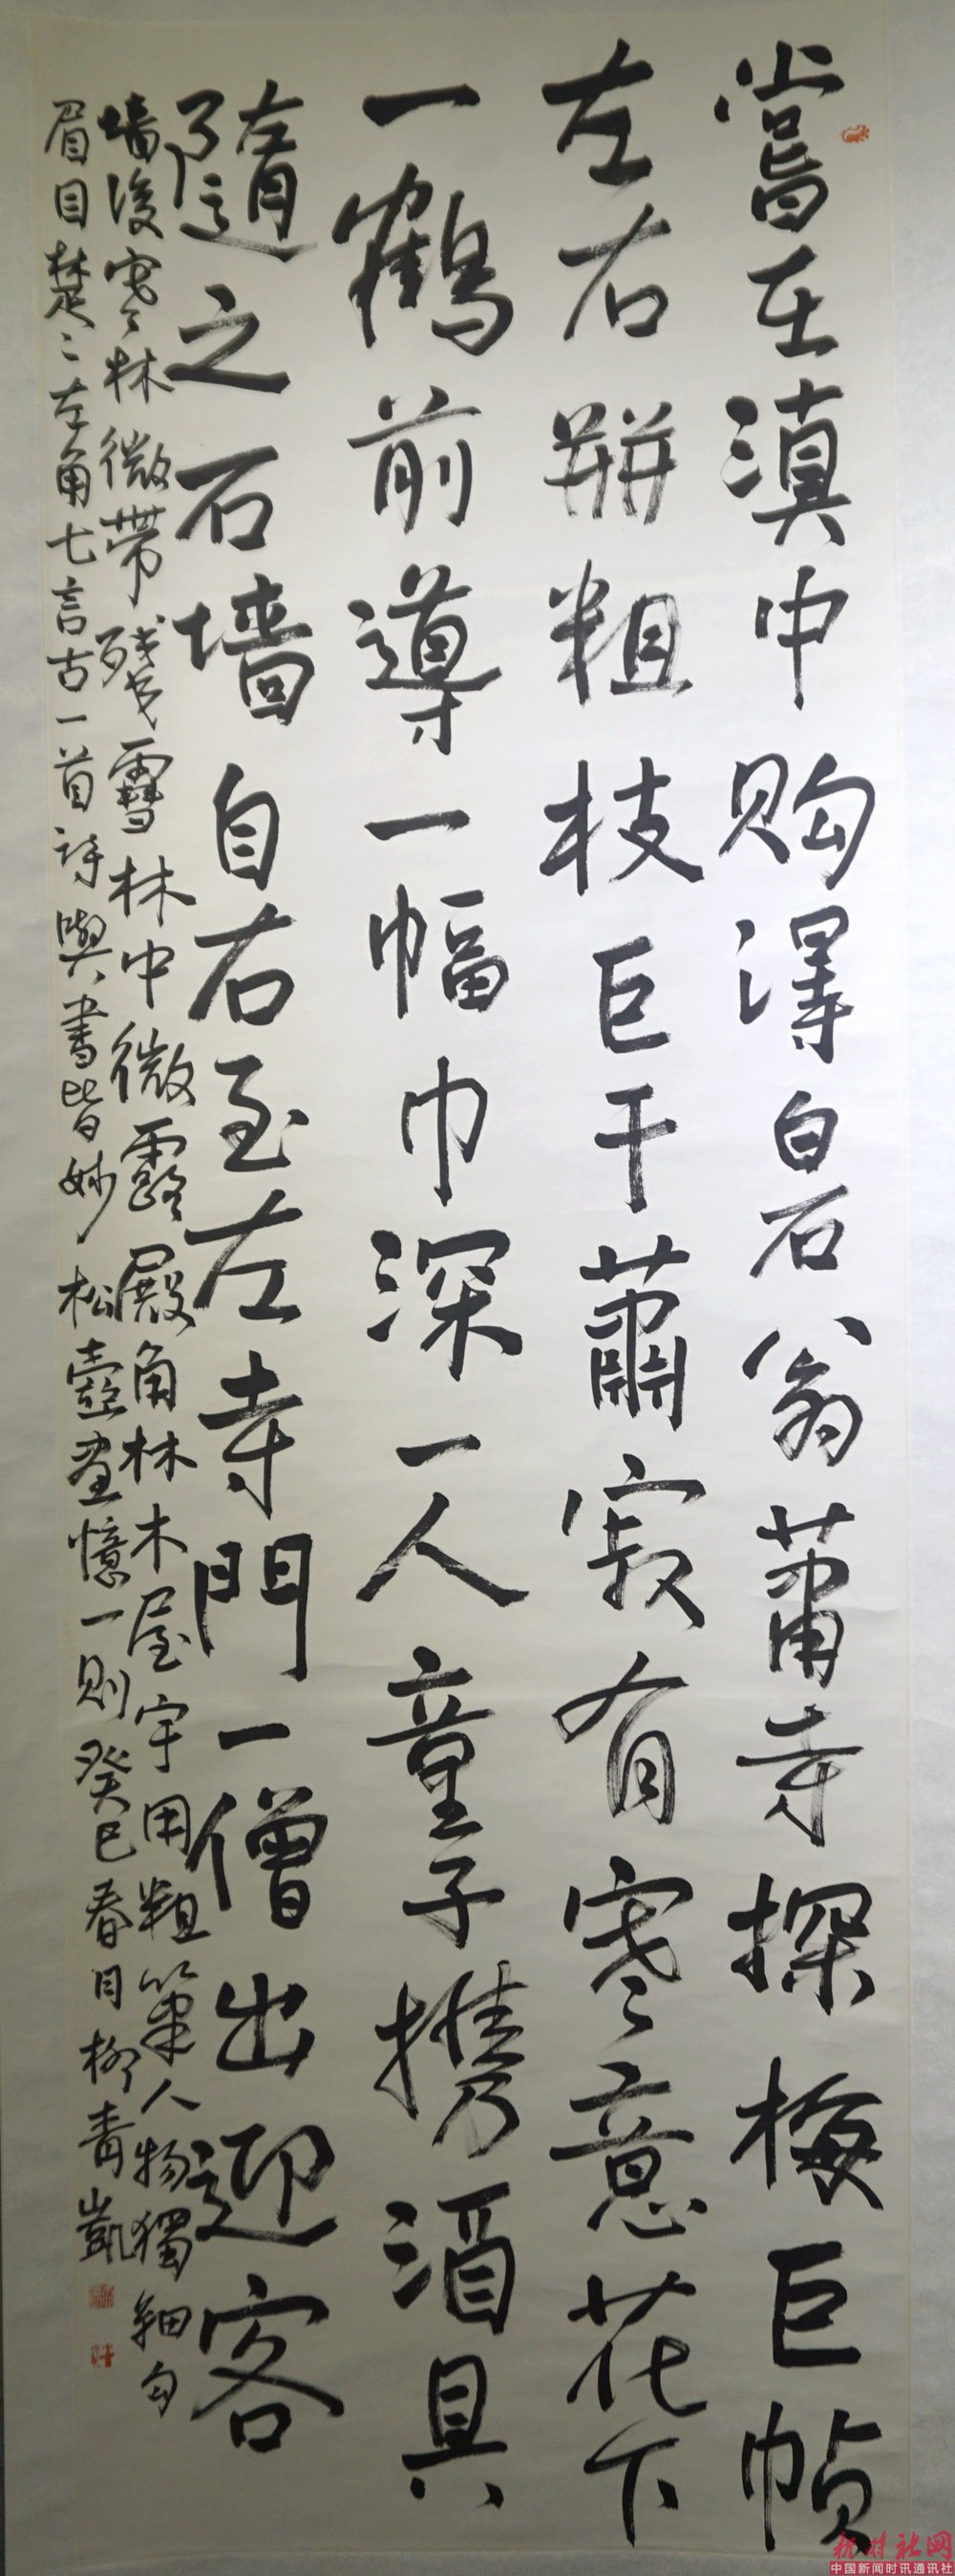 嘗在滇中购得白石翁萧寺探梅巨帧
左右骈粗枝巨干蕭寂有寒意花下
一鶴前導一幅巾深一人童子携酒具
隨之石墙自右至左寺門一僧出迎客
墙後寒林微带残雪林中微露殿角林木屋宇用粗筆人物獨細勾
眉目楚〻左角七言古一首詩與書皆妙 松壺畫憶一則 癸巳春月柳青凱
新时社网
中国新闻时讯通讯社